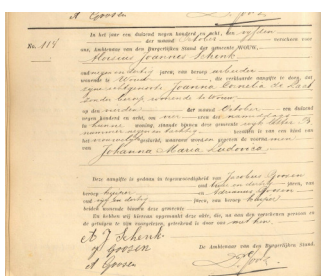 A Goosen
In het jaar een duizend negen honderd en acht, den vijfden
der maand October verscheen voor
No. 114
ons, Ambtenaar van den Burgerlijken Stand der gemeente WOUW,
Aloisius Joannes Schenk
oud negen en dertig jaren, van beroep arbeider
wonende te Wouw, die verklaarde aangifte te doen, dat
zijne echtgenoote Joanna Cornelia de Laat
zonder beroep, wonende te Wouw
op den vierden der maand October
negen honderd en acht, des uur
in hunne woning, staande binnen deze gemeente wijk letter B
nummer negen en dertig bevallen is van een kind van
het vrouwelijk geslacht, hetwelk zal worden gegeven de voornamen
van Johanna Maria Ludovica
Deze aangifte is gedaan in tegenwoordigheid van Jacobus Goosen
oud jaren, van
beroep en Adrianus Goosen
oud vijf en dertig jaren, van beroep
beiden wonende binnen deze gemeente
En hebben wij hiervan opgemaakt deze akte, die, na aan den comparant en
de getuigen te zijn voorgelezen, geteekend is door ons met hen.
A J Schenk
J Goosen
A Goosen
De Ambtenaar van den Burgerlijken Stand,